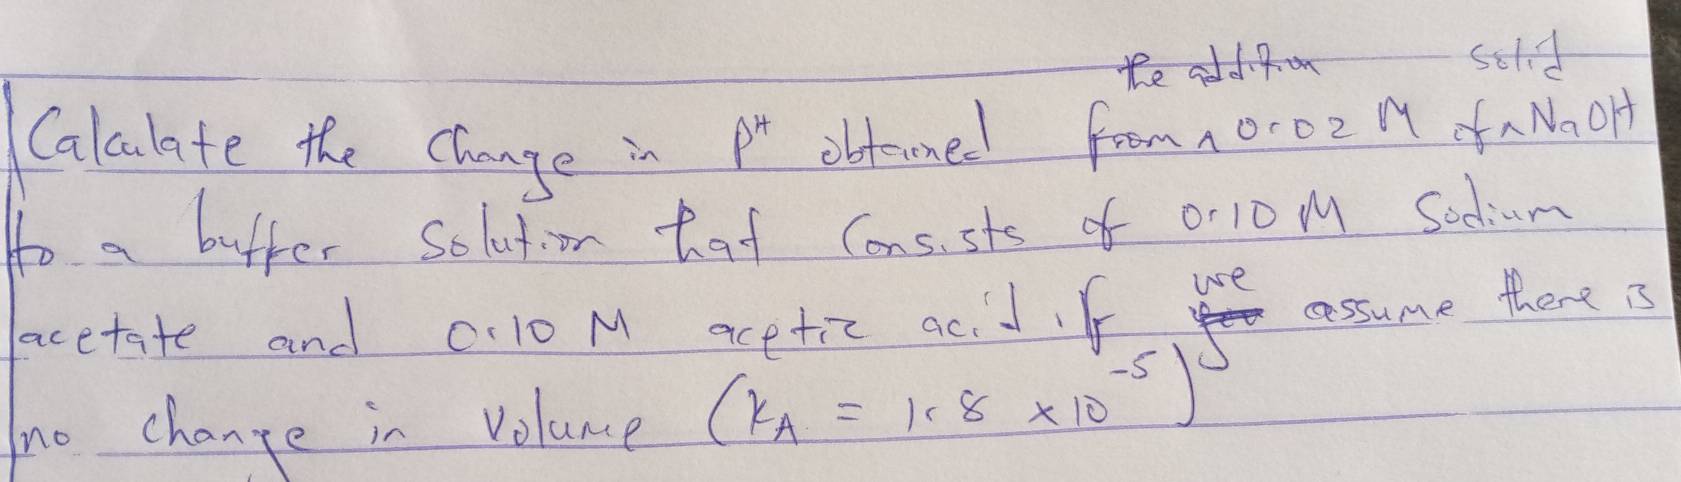 the addition solid
Calculate the change in pH obtained from ∧ 0.02 M of ∧ NaOH
to a buffer solution that consists of 0.10 M Sodium
we
acetate and 0.10 M acetic acid. If assume there is
no change in volume (KA = 1.8 × 10^-5)